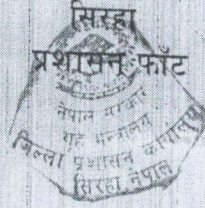 सिरहा
प्रशासन फाँट
नेपाल सरकार
गृह मन्त्रालय
जिल्ला प्रशासन कार्यालय
सिरहा नेपाल